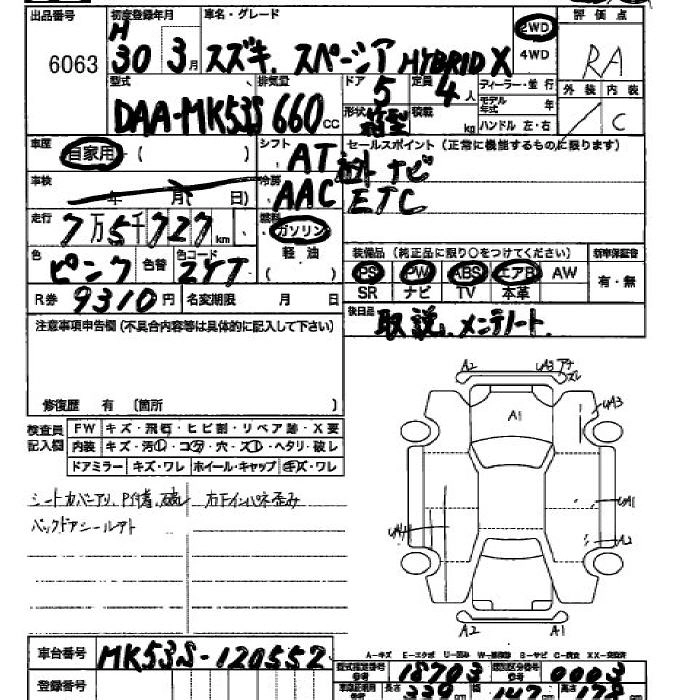 出品番号 初度登録年月 車名・グレード 2WD 評価点
6063 H 30 3月 スズキ. スペーシア HYBRID X 4WD RA
型式 排気量 ドア 定員 ディーラー・並行 外装 内装
DAA-MK53S 660cc 5 4人 モデル年式 年
形状 箱型 積載 kg ハンドル 左・右 C
車歴 自家用 ( ) シフト AT セールスポイント(正常に機能するものに限ります)
車検 年 月( 日) 冷房 AAC ナビ
ETC
走行 7万5千727km 燃料 ガソリン
軽油
( )
色 ピンク 色替 色コード ZYT
装備品(純正品に限り○をつけてください) 新車保証書
PS PW ABS エアB AW 有・無
SR ナビ TV 本革
R券 9310円 名変期限 月 日
後日品 取説、メンテノート.
注意事項申告欄(不具合内容等は具体的に記入して下さい)
修復歴 有 〔箇所 〕
検査員記入欄 FW キズ・飛石・ヒビ割・リペア跡・X要
内装 キズ・汚レ・コゲ・穴・スレ・ヘタリ・破レ
ドアミラー キズ・ワレ ホイール・キャップ キズ・ワレ
シートカバーアリ、 右下インパネ歪み
バックドアシール
A2 UA3
UA3
A1
UA1
A2
A2 A1
A-キズ E-エクボ U-凹み W-補修跡 B-サビ C-腐食 XX-交換済
車台番号 MK53S-120552
型式指定番号 18703 類別区分番号 0003
登録番号
長さ 339cm 147cm 高さ 178